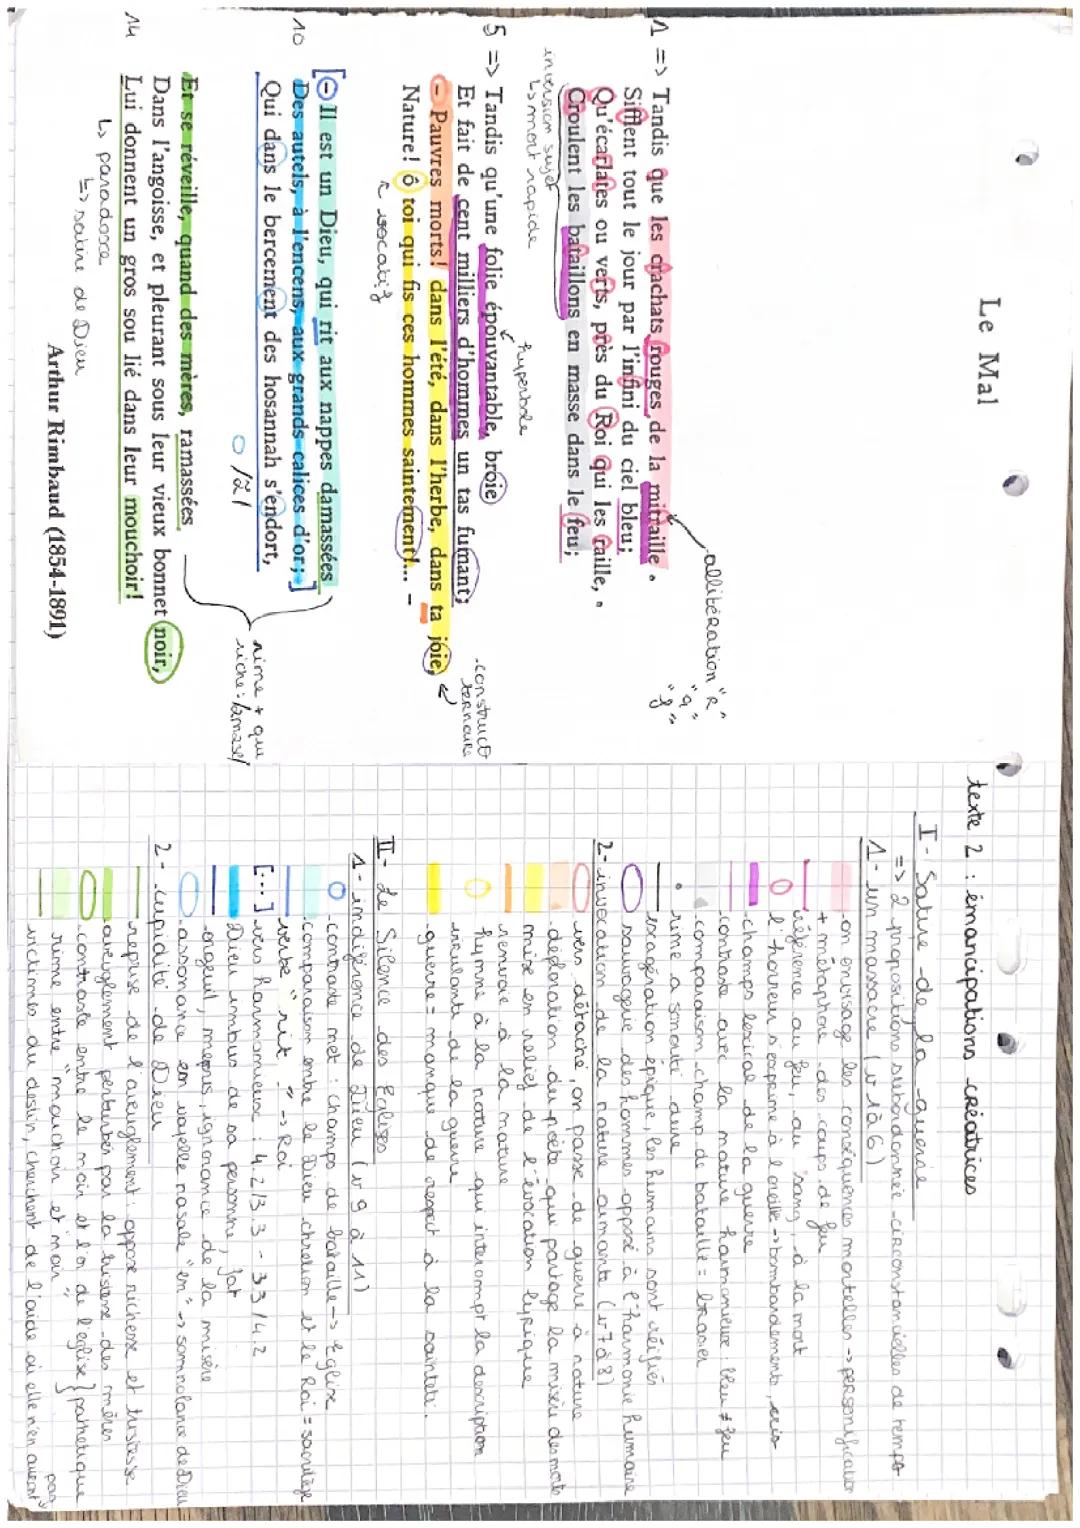 Le Mal
1 => Tandis que les crachats rouges de la mitraille
Sifflent tout le jour par l'infini du ciel bleu;
Qu'écarlates ou verts, près du Roi qui les raille,
Croulent les bataillons en masse dans le feu;
allitération "R"
"q"
"f"
inversion sujet
↳ mort rapide
hyperbole
5 => Tandis qu'une folie épouvantable, broie
Et fait de cent milliers d'hommes un tas fumant;
- Pauvres morts! dans l'été, dans l'herbe, dans ta joie,
Nature! ô toi qui fis ces hommes saintement!... -
vocatif
construct
ternaire
[- Il est un Dieu, qui rit aux nappes damassées
10 Des autels, à l'encens, aux grands calices d'or; ]
Qui dans le bercement des hosannah s'endort,
/ɑ̃/
Et se réveille, quand des mères, ramassées
Dans l'angoisse, et pleurant sous leur vieux bonnet noir,
14 Lui donnent un gros sou lié dans leur mouchoir!
rime + que
riche: /amase/
↳ paradoxe
↳> satire de Dieu
Arthur Rimbaud (1854-1891)
texte 2 : émancipations créatrices
I - Satire de la guerre
=> 2 propositions subordonnée circonstancielles de temps
1 - un massacre (v 1 à 6)
on envisage les conséquences mortelles -> personnification
+ métaphore des coups de feu
référence au feu, au sang, à la mort
l'horreur s'exprime à l'oreille -> bombardements, cris
champs lexical de la guerre
contraste avec la nature harmonieuse bleu ≠ feu
comparaison champ de bataille = brasier
rime a sonorité dure
exagération épique, les humains sont réifiés
sauvagerie des hommes opposé à l'harmonie humaine
2 - invocation de la nature aimante (v 7 à 8)
vers détaché, on passe de guerre à nature
déploration du poète qui partage la misère des morts
mise en relief de l'évocation lyrique
renvoie à la nature
hymne à la nature qui interompt la description
virulante de la guerre
guerre = manque de respect à la sainteté.
II - Le Silence des Eglises
1 - indifférence de Dieu (v 9 à 11)
contraste net : champs de bataille -> Eglise
comparaison entre le Dieu chrétien et le Roi = sacrilège
verbe "rit" -> Roi
[...] vers harmonieux : 4.2/3.3 - 3 3/4.2
Dieu imbus de sa personne, fat
orgeuil, mepris, ignorance de la misère
assonance en voyelle nasale "en" -> somnolance de Dieu
2 - cupidité de Dieu
reprise de l'aveuglement : oppose richesse et tristesse
aveuglement perturbée par la tristesse des mères
contraste entre le noir et l'or de l'église } pathétique
rime entre "mouchoir et noir"
victimes du destin, cherchent de l'aide où elle n'en auront
pas